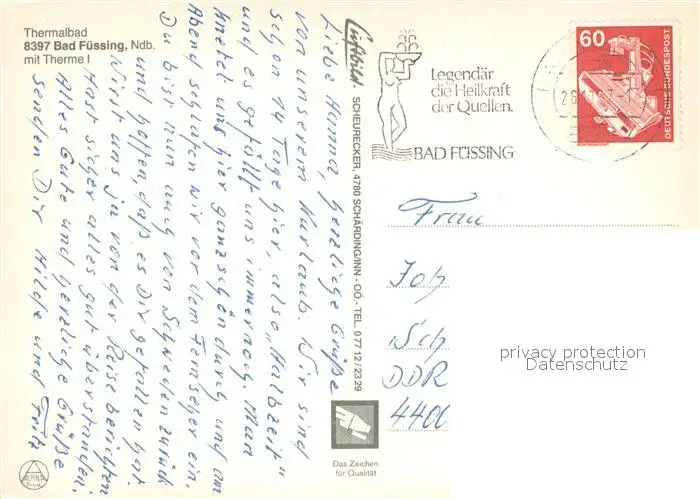 Thermalbad
8397 Bad Füssing, Ndb.
mit Therme I
Liebe Hanna, herzliche Grüße
von unserem Kurlaub. Wir sind
schon 14 Tage hier, also „Halbzeit"
und es gefällt uns immer noch. Man
knetet uns hier ganz schön durch und am
Abend schlafen wir vor dem Fernseher ein.
Du bist nun auch von Schweden zurück
und hoffen, daß es Dir gefallen hat
Wirst uns ja von der Reise berichten
Hast sicher alles gut überstanden.
Alles Gute und herzliche Grüße
senden Dir Hilde und Fritz
Luftbild SCHEURECKER, 4780 SCHÄRDING/INN - OÖ. - TEL. 0 77 12 / 23 29
Legendär
die Heilkraft
der Quellen.
BAD FÜSSING
60
DEUTSCHE BUNDESPOST
Frau
Joh
Sch
DDR
440
privacy protection
Datenschutz
ALPINA
Das Zeichen
für Qualität